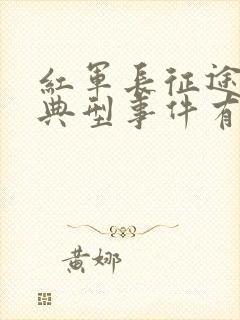 紅軍長征途
典型事件有
黄娜